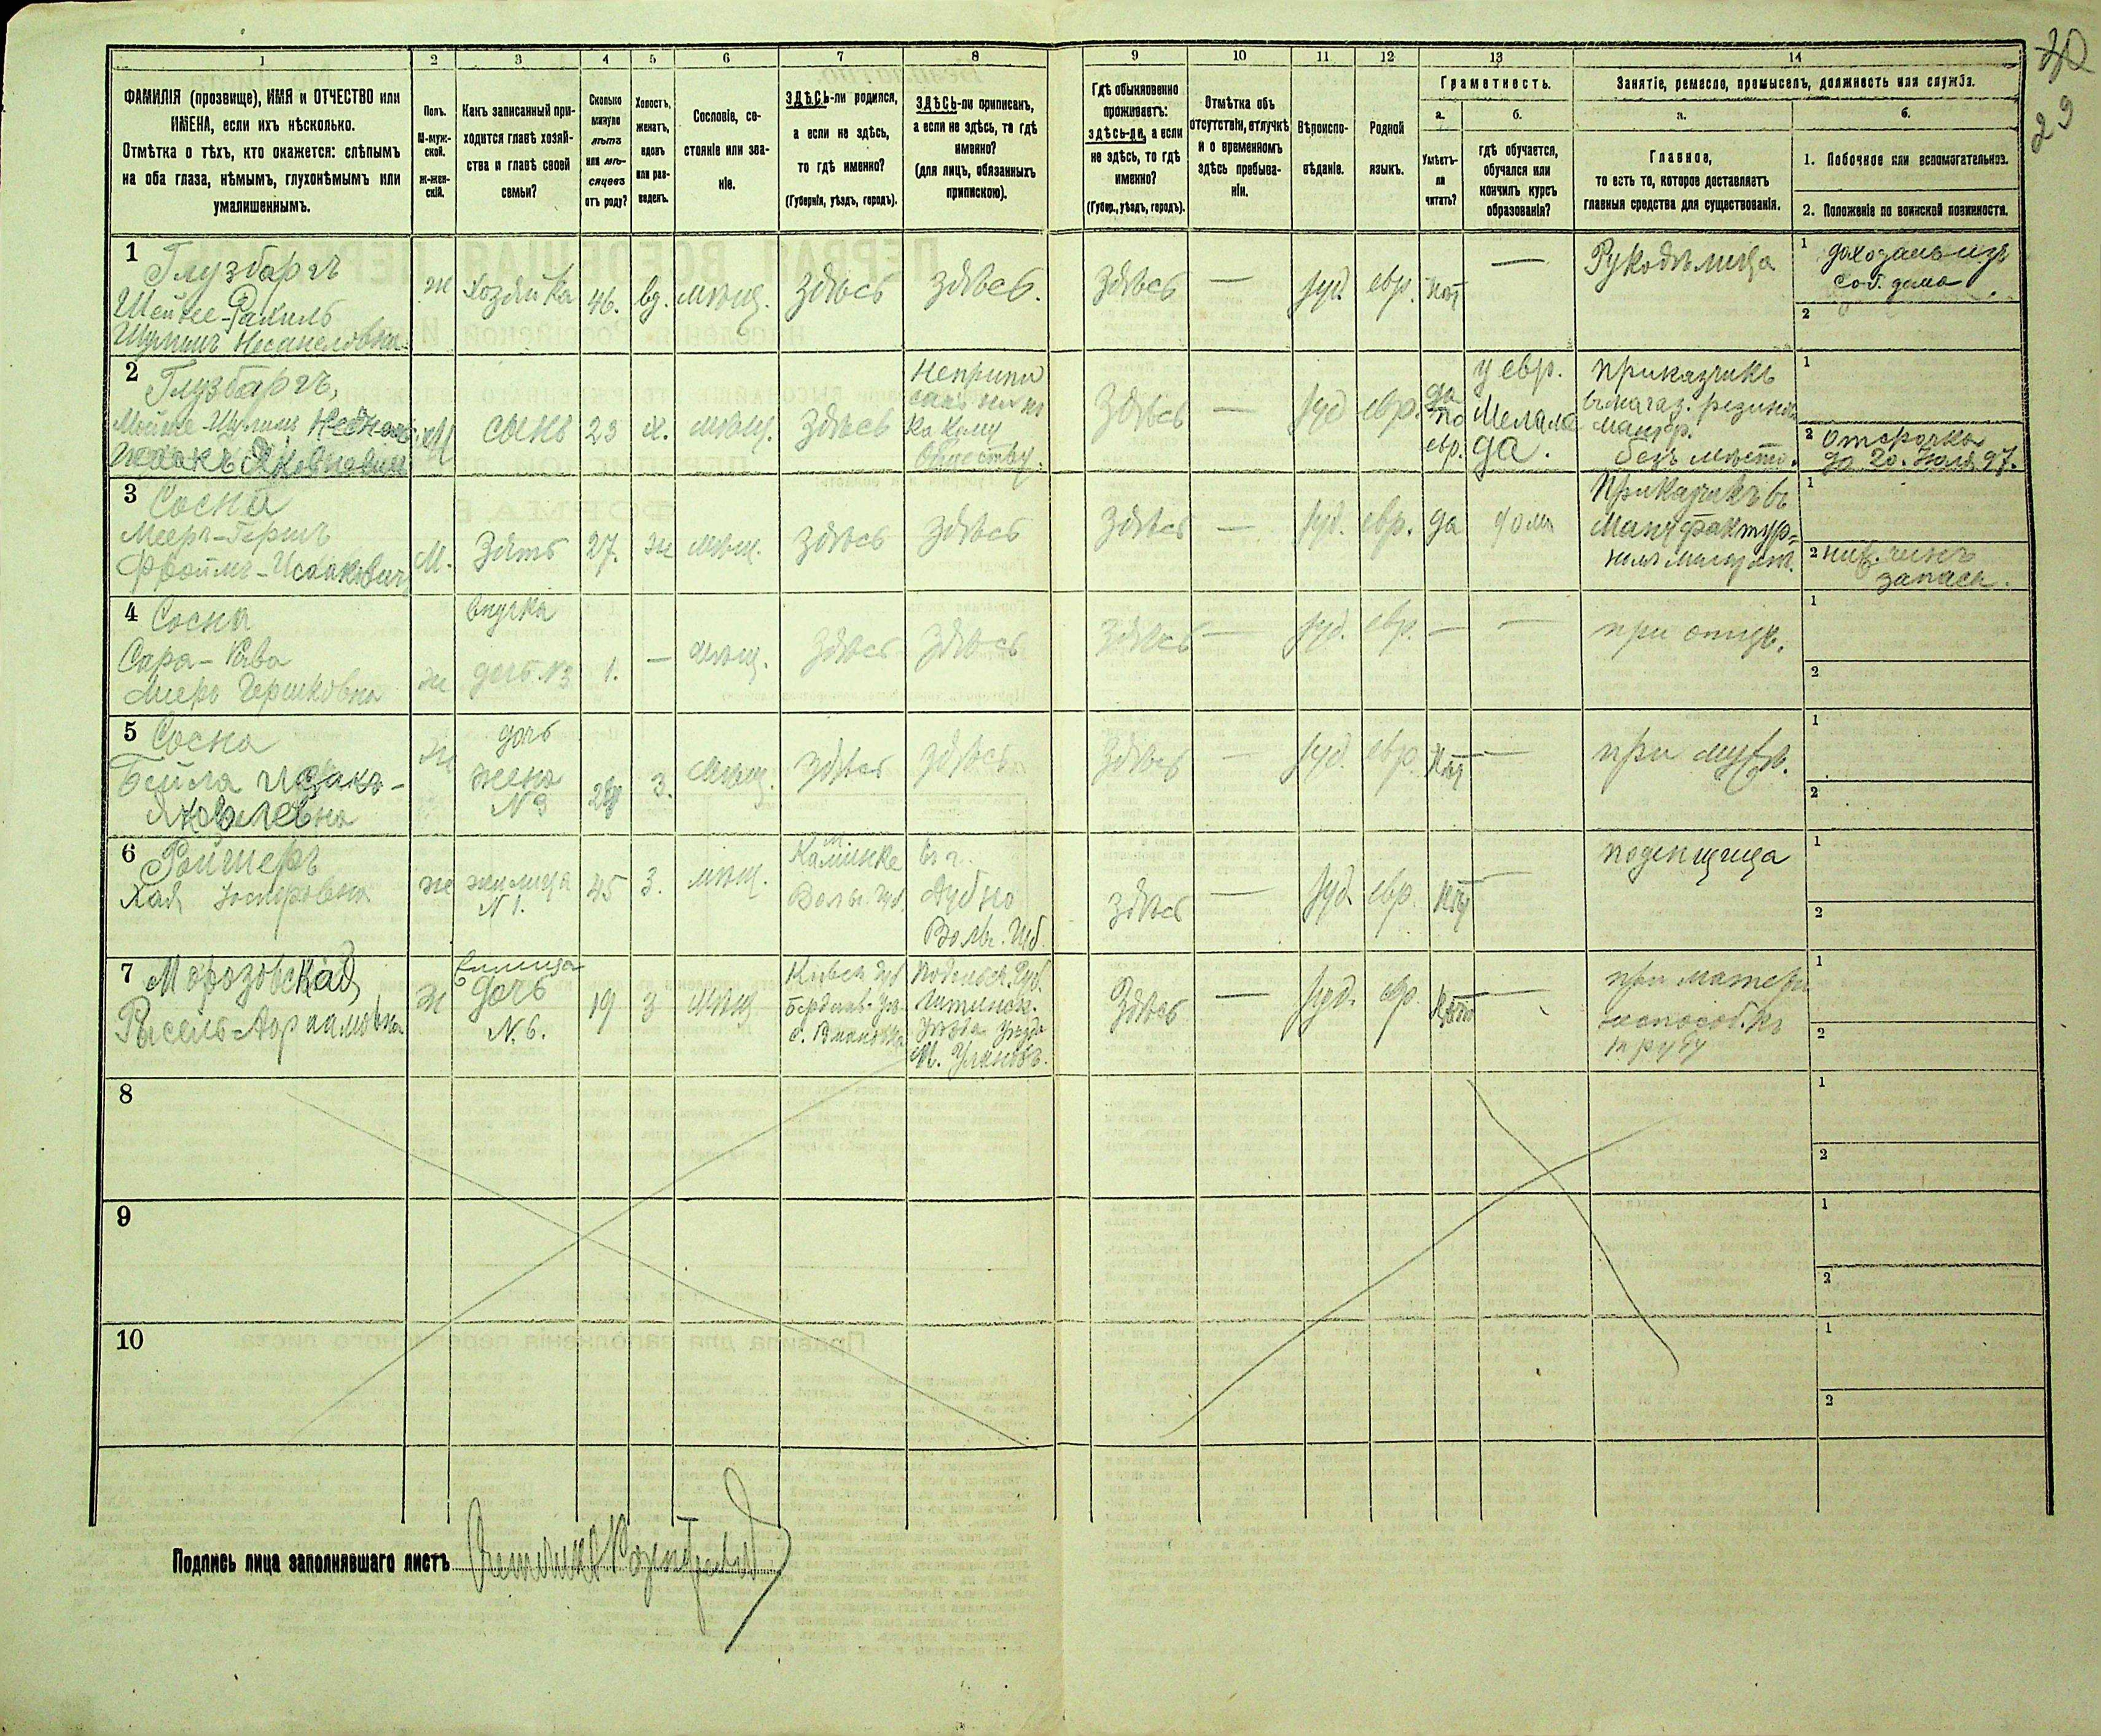 29
1 2 3 4 5 6 7 8 9 10 11 12 13 14
ФАМИЛІЯ (прозвище), ИМЯ и ОТЧЕСТВО или
ИМЕНА, если ихъ нѣсколько.
Отмѣтка о тѣхъ, кто окажется: слѣпымъ
на оба глаза, нѣмымъ, глухонѣмымъ или
умалишеннымъ.
Полъ.
М-муж-
ской.
Ж-жен-
скій.
Какъ записанный при-
ходится главѣ хозяй-
ства и главѣ своей
семьи?
Сколько
минуло
лѣтъ
или мѣ-
сяцевъ
отъ роду?
Холостъ,
женатъ,
вдовъ
или раз-
веденъ.
Сословіе, со-
стояніе или зва-
ніе.
ЗДѢСЬ-ли родился,
а если не здѣсь,
то гдѣ именно?
(Губернія, уѣздъ, городъ).
ЗДѢСЬ-ли приписанъ,
а если не здѣсь, то гдѣ
именно?
(для лицъ, обязанныхъ
припискою).
Гдѣ обыкновенно
проживаетъ:
здѣсь-ли, а если
не здѣсь, то гдѣ
именно?
(Губер., уѣздъ, городъ).
Отмѣтка объ
отсутствіи, отлучкѣ
и о временномъ
здѣсь пребыва-
ніи.
Вѣроиспо-
вѣданіе.
Родной
языкъ.
Грамотность.
а.
Умѣетъ-
ли
читать?
б.
гдѣ обучается,
обучался или
кончилъ курсъ
образованія?
Занятіе, ремесло, промыселъ, должность или служба.
а.
Главное,
то есть то, которое доставляетъ
главныя средства для существованія.
б.
1. Побочное или вспомогательное.
2. Положеніе по воинской повинности.
1
Глузбаргъ
Шейнее-Рахиль
Шулимъ
ж
хозяйка
46.
вд.
мѣщ.
здѣсь
здѣсь.
здѣсь
—
іуд.
евр.
нѣт
—
Рукодѣлица
1
соб. дома
2
2
Глузбаргъ,
Шулимъ
М
сынъ
23
х.
мѣщ.
здѣсь
Обществу.
Здѣсь
—
іуд
евр.
да
по
евр.
у евр.
Мелame
да.
приказчикъ
безъ мѣста.
1
2 Отсрочка
до 20. Іюля 97.
3
Сосна
Мееръ-Гершъ
Фроимъ-Исааковичъ
М.
Зять
27.
ж
мѣщ.
здѣсь
здѣсь
здѣсь
—
іуд.
евр.
да
дома
Приказчикъ въ
Мануфактур-
номъ магаз.
1
2 ниж. чинъ
запаса.
4
Сосна
Сара-Хава
Мееръ Гершковна
ж
внучка
дочь №3
1.
—
мѣщ.
здѣсь
здѣсь
здѣсь
—
іуд.
евр.
—
—
при отцѣ.
1
2
5
Сосна
Бейла Исаакъ-
ж
дочь
жена
№ 3
з.
мѣщ.
здѣсь
здѣсь
здѣсь
—
іуд.
евр.
нѣт
—
при мужѣ.
1
2
6
Ройтеръ
Хая
ж
жилица
№ 1.
45
з.
мѣщ.
Волын. губ.
въ г.
Дубно
Волы. Губ.
здѣсь
—
іуд.
евр.
нѣт
—
поденщица
1
2
7
Морозовская
Рисель-Аврамовна
ж
дочь
№ 6.
19
з
мѣщ
Кіевск губ
Бердичев. уѣз.
Подольск. Губ.
Литинск.
уѣзда
М. Улановъ.
Здѣсь
—
іуд.
евр.
нѣтъ
—
при матери
1
2
8
1
2
9
1
2
10
1
2
Подпись лица заполнявшаго листъ